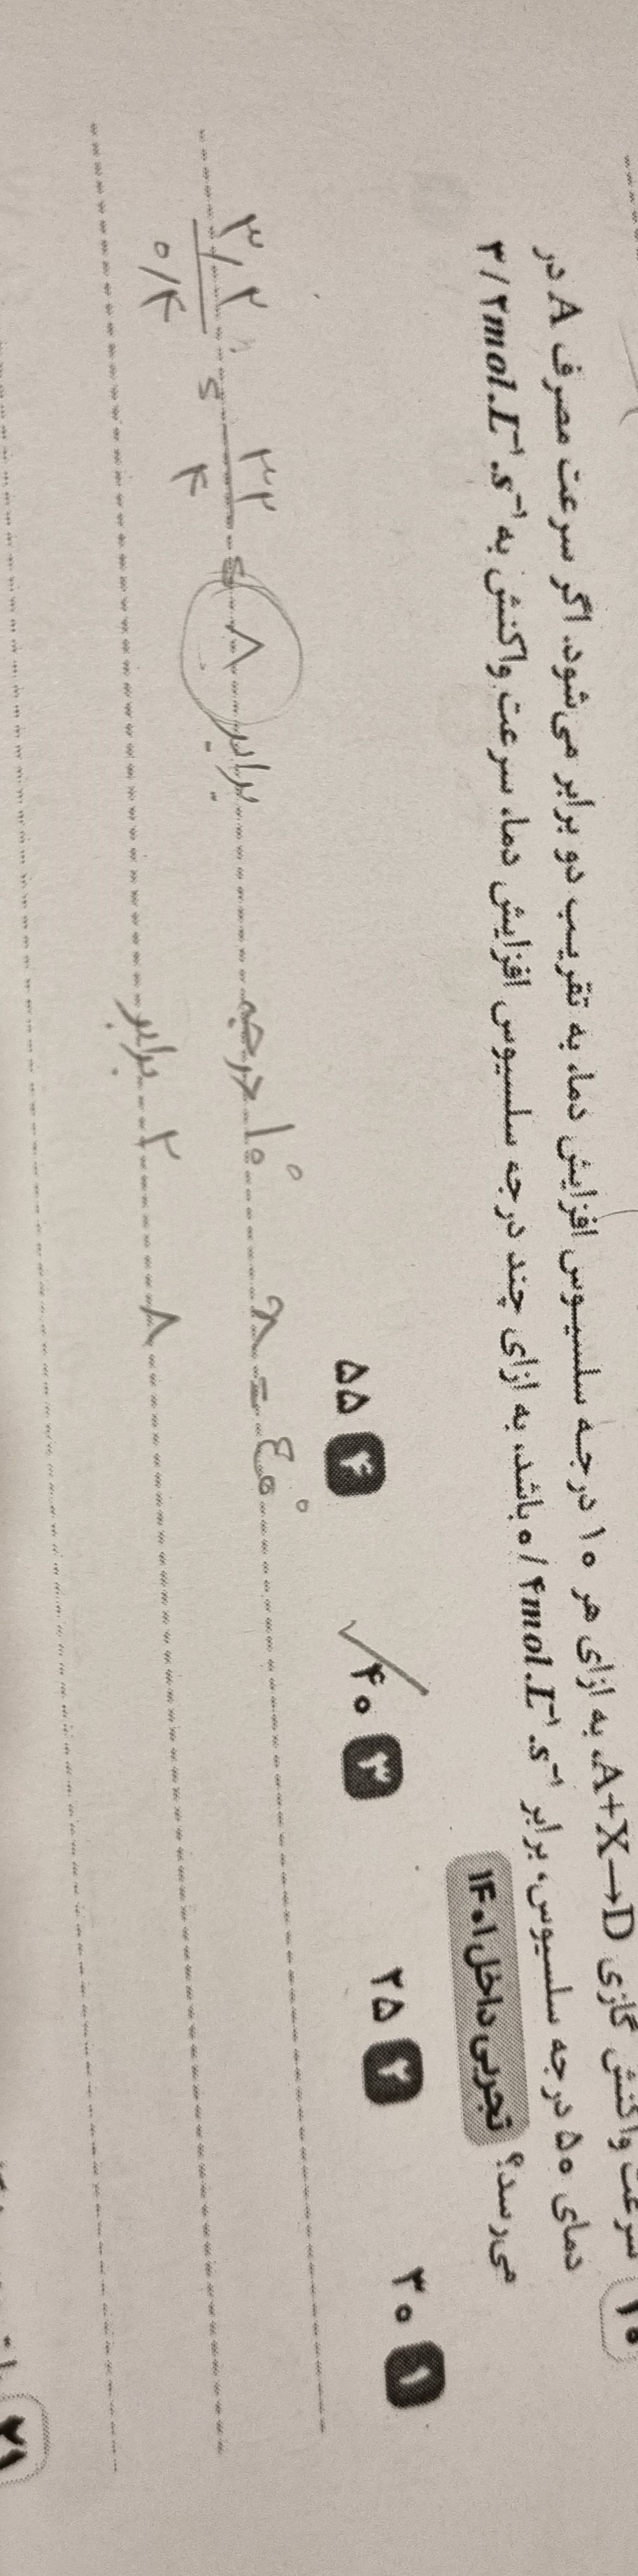 ۲۰ سرعت واکنش گازی A+X→D، به ازای هر ۱۰ درجه سلسیوس افزایش دما، به تقریب دو برابر می‌شود. اگر سرعت مصرف A در
دمای ۵۰ درجه سلسیوس، برابر ۰/۴mol.L⁻¹.s⁻¹ باشد، به ازای چند درجه سلسیوس افزایش دما، سرعت واکنش به ۳/۲mol.L⁻¹.s⁻¹
می‌رسد؟ تجربی داخل ۱۴۰۱
۱ ۳۰ ۲ ۲۵ ۳ ۴۰ ۴ ۵۵
۳/۲ / ۰/۴ = ۳۲ / ۴ = ۸ برابر
۱۰° درجه ۲ برابر
x = ۴۰° ۸
۲۱